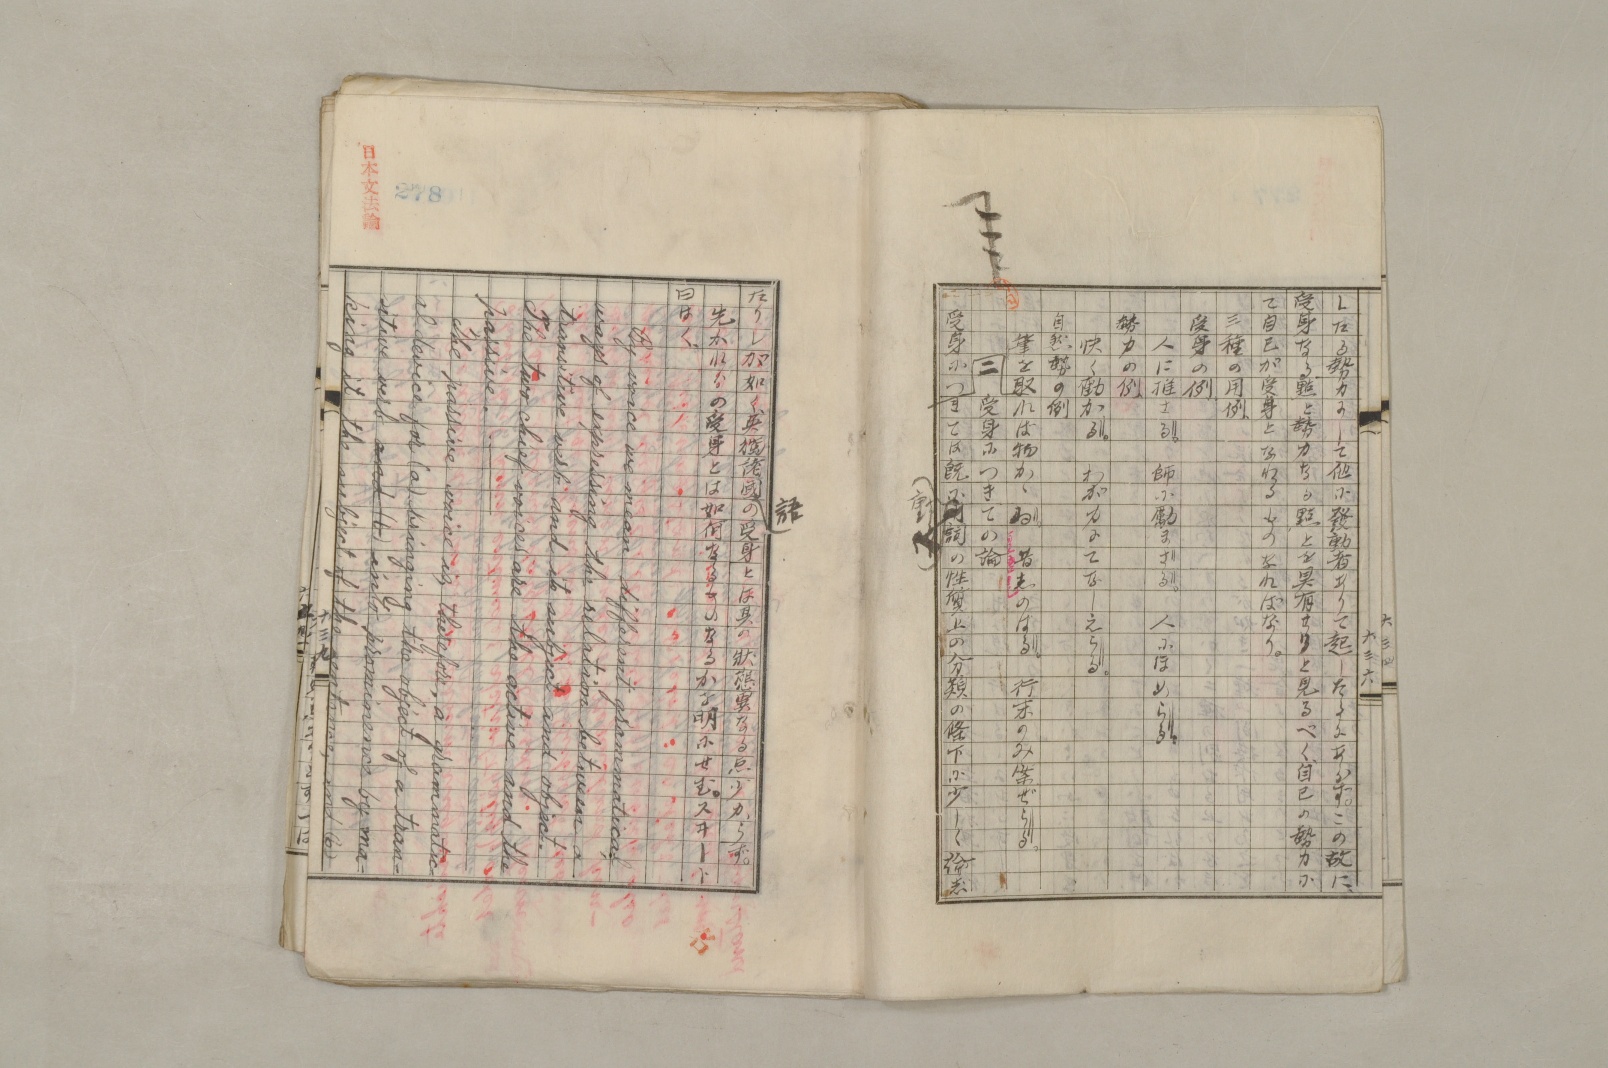 したる勢力にして他に發動者ありて起したるにあらず。この故に
受身なる點と勢力なる點とを具有せりと見るべく自己の勢力に
て自己が受身となれるものなればなり。
三種の用例、
受身の例
人に推さる。 師に勵まさる。 人にほめらる。
勢力の例、
快く働かる。 わが力にてなしえらる。
自然勢の例
筆を取れば物かゝる 昔しのばる。 行末のみ案ぜらる。
二 受身につきての論
受身につきては既に動詞の性質上の分類の條下に少しく論じ
六三六
日本文法論
278
たりしが如く英獨語の受身とは其の狀態異なる点少からず。
先かれらの受身とは如何なるものなるかを明にせむ。スヰート
曰はく
By voice we mean different grammatical
ways of expressing the relation between a
transitive verb and its subject and object.
The two chief voices are the active and the
passive.
The passive voice is, therefore, a grammatic-
al device for (a) bringing the object of a tran-
sitive verb into prominence by ma-
king it the subject of the sentence, and (b)
六三九